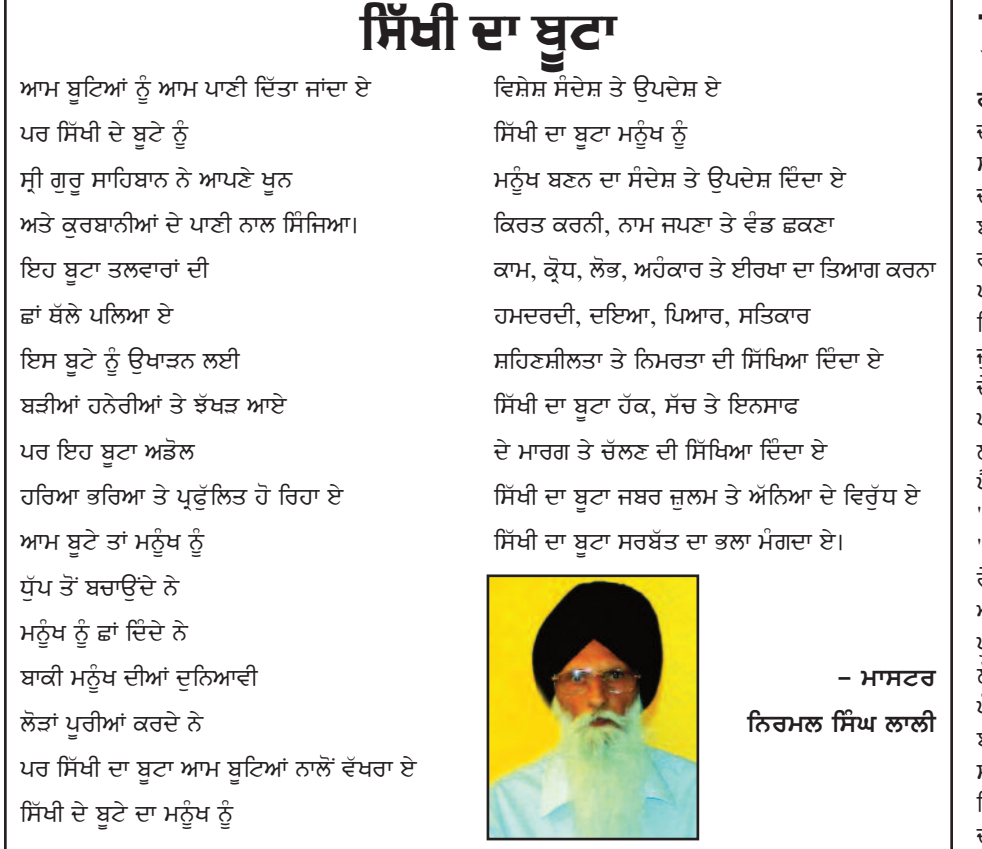 ਸਿੱਖੀ ਦਾ ਬੂਟਾ
ਆਮ ਬੂਟਿਆਂ ਨੂੰ ਆਮ ਪਾਣੀ ਦਿੱਤਾ ਜਾਂਦਾ ਏ
ਪਰ ਸਿੱਖੀ ਦੇ ਬੂਟੇ ਨੂੰ
ਸ੍ਰੀ ਗੁਰੂ ਸਾਹਿਬਾਨ ਨੇ ਆਪਣੇ ਖੂਨ
ਅਤੇ ਕੁਰਬਾਨੀਆਂ ਦੇ ਪਾਣੀ ਨਾਲ ਸਿੰਜਿਆ।
ਇਹ ਬੂਟਾ ਤਲਵਾਰਾਂ ਦੀ
ਛਾਂ ਥੱਲੇ ਪਲਿਆ ਏ
ਇਸ ਬੂਟੇ ਨੂੰ ਉਖਾੜਨ ਲਈ
ਬੜੀਆਂ ਹਨੇਰੀਆਂ ਤੇ ਝੱਖੜ ਆਏ
ਪਰ ਇਹ ਬੂਟਾ ਅਡੋਲ
ਹਰਿਆ ਭਰਿਆ ਤੇ ਪ੍ਰਫੁੱਲਿਤ ਹੋ ਰਿਹਾ ਏ
ਆਮ ਬੂਟੇ ਤਾਂ ਮਨੁੱਖ ਨੂੰ
ਧੁੱਪ ਤੋਂ ਬਚਾਉਂਦੇ ਨੇ
ਮਨੁੱਖ ਨੂੰ ਛਾਂ ਦਿੰਦੇ ਨੇ
ਬਾਕੀ ਮਨੁੱਖ ਦੀਆਂ ਦੁਨਿਆਵੀ
ਲੋੜਾਂ ਪੂਰੀਆਂ ਕਰਦੇ ਨੇ
ਪਰ ਸਿੱਖੀ ਦਾ ਬੂਟਾ ਆਮ ਬੂਟਿਆਂ ਨਾਲੋਂ ਵੱਖਰਾ ਏ
ਸਿੱਖੀ ਦੇ ਬੂਟੇ ਦਾ ਮਨੁੱਖ ਨੂੰ
ਵਿਸ਼ੇਸ਼ ਸੰਦੇਸ਼ ਤੇ ਉਪਦੇਸ਼ ਏ
ਸਿੱਖੀ ਦਾ ਬੂਟਾ ਮਨੁੱਖ ਨੂੰ
ਮਨੁੱਖ ਬਣਨ ਦਾ ਸੰਦੇਸ਼ ਤੇ ਉਪਦੇਸ਼ ਦਿੰਦਾ ਏ
ਕਿਰਤ ਕਰਨੀ, ਨਾਮ ਜਪਣਾ ਤੇ ਵੰਡ ਛਕਣਾ
ਕਾਮ, ਕ੍ਰੋਧ, ਲੋਭ, ਅਹੰਕਾਰ ਤੇ ਈਰਖਾ ਦਾ ਤਿਆਗ ਕਰਨਾ
ਹਮਦਰਦੀ, ਦਇਆ, ਪਿਆਰ, ਸਤਿਕਾਰ
ਸ਼ਹਿਣਸ਼ੀਲਤਾ ਤੇ ਨਿਮਰਤਾ ਦੀ ਸਿੱਖਿਆ ਦਿੰਦਾ ਏ
ਸਿੱਖੀ ਦਾ ਬੂਟਾ ਹੱਕ, ਸੱਚ ਤੇ ਇਨਸਾਫ
ਦੇ ਮਾਰਗ ਤੇ ਚੱਲਣ ਦੀ ਸਿੱਖਿਆ ਦਿੰਦਾ ਏ
ਸਿੱਖੀ ਦਾ ਬੂਟਾ ਜਬਰ ਜ਼ੁਲਮ ਤੇ ਅੱਨਿਆ ਦੇ ਵਿਰੁੱਧ ਏ
ਸਿੱਖੀ ਦਾ ਬੂਟਾ ਸਰਬੱਤ ਦਾ ਭਲਾ ਮੰਗਦਾ ਏ।
– ਮਾਸਟਰ
ਨਿਰਮਲ ਸਿੰਘ ਲਾਲੀ